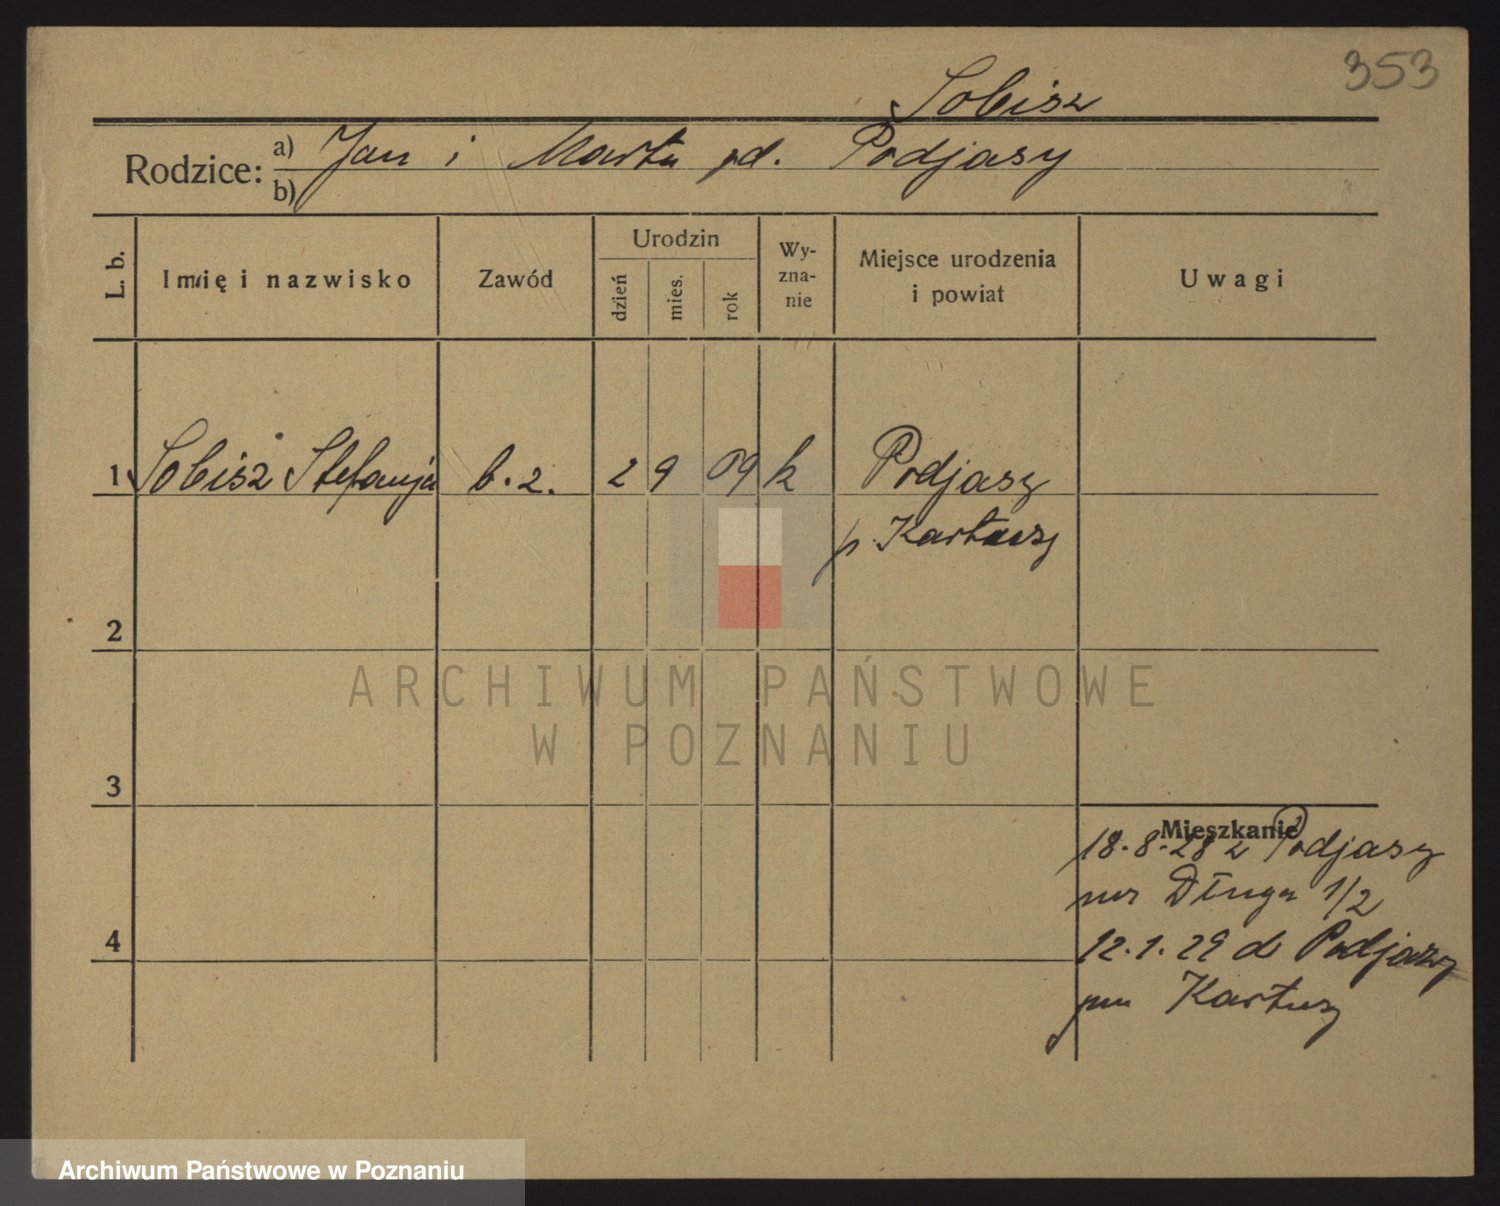 353
Sobisz
Rodzice: a) Jan i Marta pd. Podjasy
b)
L. b.
Imię i nazwisko
Zawód
Urodzin
dzień
mies.
rok
Wy-
zna-
nie
Miejsce urodzenia
i powiat
Uwagi
1 Sobisz Stefanja b. z. 2 9 09 k Podjasy
p. Kartuzy
2
3
4
Mieszkanie
18.8.28 z Podjasy
Długa 1/2
12.1.29 do Podjazy
pow Kartuzy
ARCHIWUM PAŃSTWOWE
W POZNANIU
Archiwum Państwowe w Poznaniu